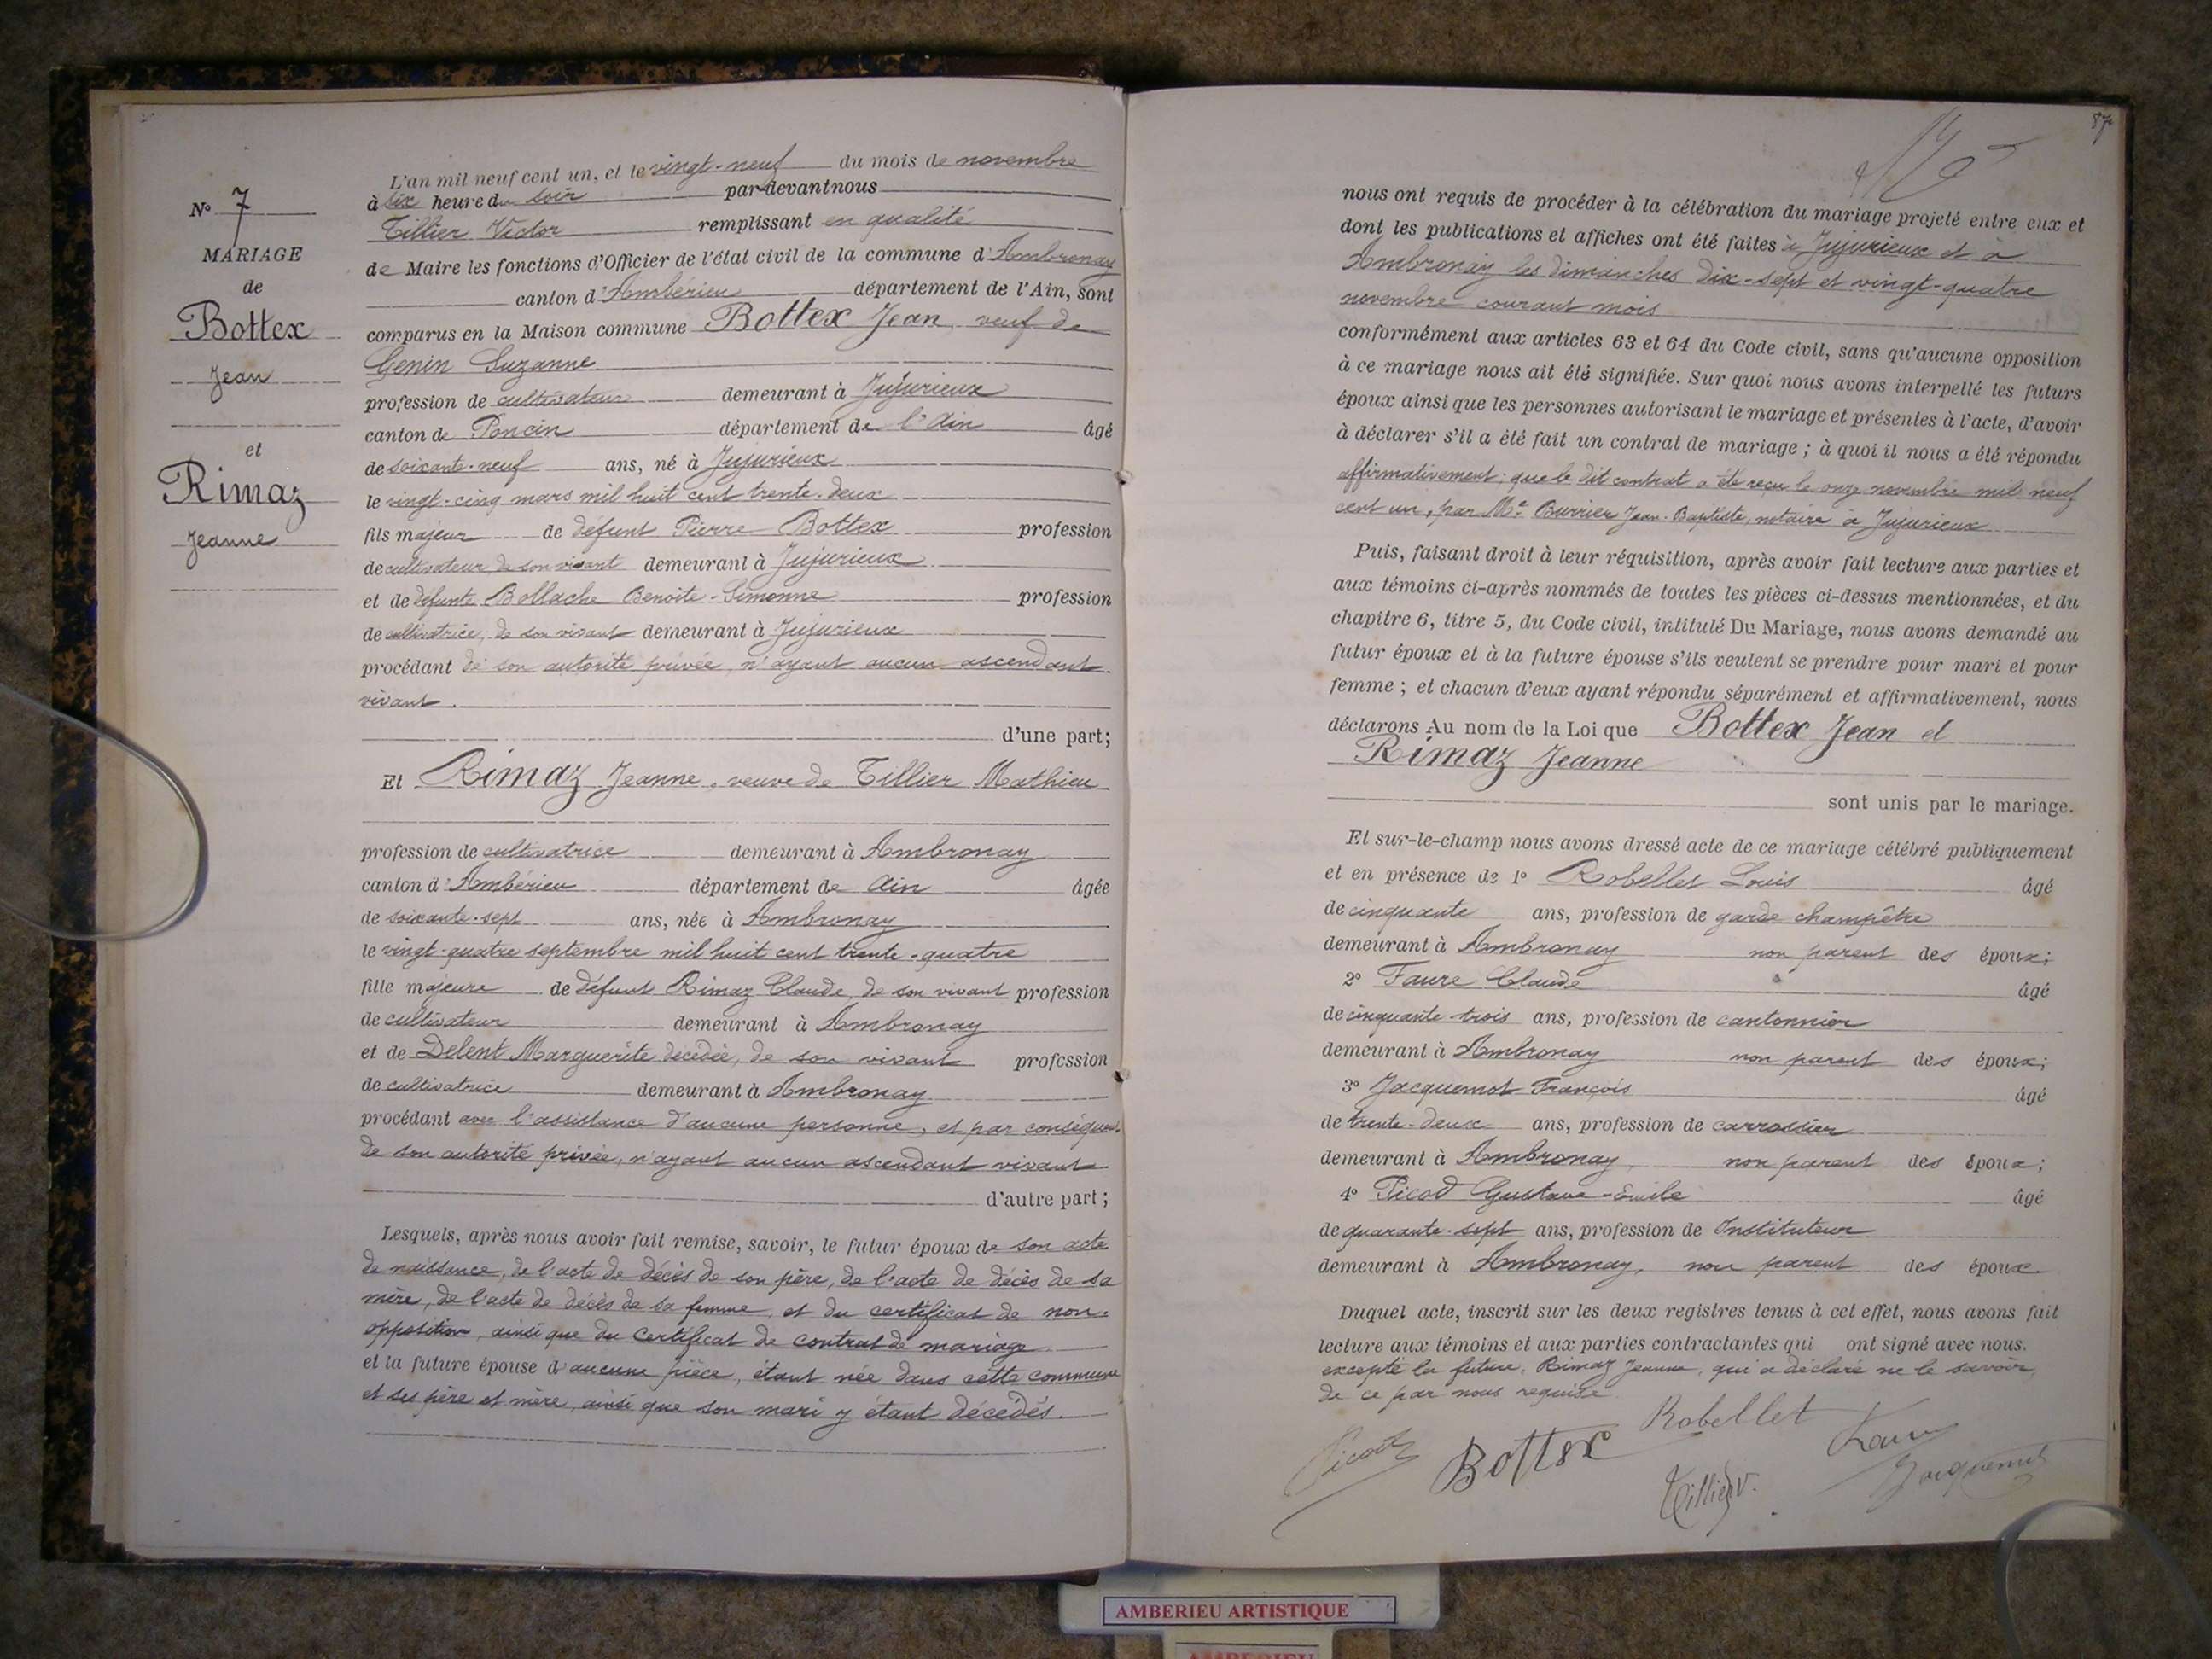 N° 7
MARIAGE
de
Bottex
Jean
et
Rimaz
Jeanne
L'an mil neuf cent un, et le vingt-neuf du mois de novembre
à six heure du soir par-devant nous
Tillier Victor remplissant en qualité
de Maire les fonctions d'Officier de l'état civil de la commune d'Ambronay
canton d'Ambérieu département de l'Ain, sont
comparus en la Maison commune Bottex Jean, veuf de
Genin Suzanne
profession de cultivateur demeurant à Jujurieux
canton de Poncin département de l'Ain âgé
de soixante-neuf ans, né à Jujurieux
le vingt-cinq mars mil huit cent trente-deux
fils majeur de défunt Pierre Bottex profession
de cultivateur, de son vivant demeurant à Jujurieux
et de défunte Bollache Benoite-Simonne profession
de cultivatrice, de son vivant demeurant à Jujurieux
procédant de son autorité privée, n'ayant aucun ascendant
vivant.
d'une part;
Et Rimaz Jeanne, veuve de Tillier Mathieu
profession de cultivatrice demeurant à Ambronay
canton d'Ambérieu département de Ain âgée
de soixante-sept ans, née à Ambronay
le vingt-quatre septembre mil huit cent trente-quatre
fille majeure de défunt Rimaz Claude, de son vivant profession
de cultivateur demeurant à Ambronay
et de Delent Marguerite décédée, de son vivant profession
de cultivatrice demeurant à Ambronay
procédant avec l'assistance d'aucune personne, et par conséquent
de son autorité privée, n'ayant aucun ascendant vivant
d'autre part;
Lesquels, après nous avoir fait remise, savoir, le futur époux de son acte
de naissance, de l'acte de décès de son père, de l'acte de décès de sa
mère, de l'acte de décès de sa femme, et du certificat de non-
opposition, ainsi que du certificat de contrat de mariage
et la future épouse d'aucune pièce, étant née dans cette commune
et ses père et mère, ainsi que son mari y étant décédés.
87
nous ont requis de procéder à la célébration du mariage projeté entre eux et
dont les publications et affiches ont été faites à Jujurieux et à
Ambronay les dimanches dix-sept et vingt-quatre
novembre courant mois
conformément aux articles 63 et 64 du Code civil, sans qu'aucune opposition
à ce mariage nous ait été signifiée. Sur quoi nous avons interpellé les futurs
époux ainsi que les personnes autorisant le mariage et présentes à l'acte, d'avoir
à déclarer s'il a été fait un contrat de mariage; à quoi il nous a été répondu
affirmativement; que le dit contrat a été reçu le onze novembre mil neuf
cent un, par Me Burrier Jean-Baptiste, notaire à Jujurieux
Puis, faisant droit à leur réquisition, après avoir fait lecture aux parties et
aux témoins ci-après nommés de toutes les pièces ci-dessus mentionnées, et du
chapitre 6, titre 5, du Code civil, intitulé Du Mariage, nous avons demandé au
futur époux et à la future épouse s'ils veulent se prendre pour mari et pour
femme; et chacun d'eux ayant répondu séparément et affirmativement, nous
déclarons Au nom de la Loi que Bottex Jean et
Rimaz Jeanne
sont unis par le mariage.
Et sur-le-champ nous avons dressé acte de ce mariage célébré publiquement
et en présence de 1° Robellet Louis âgé
de cinquante ans, profession de garde champêtre
demeurant à Ambronay non parent des époux;
2° Faure Claude âgé
de cinquante-trois ans, profession de cantonnier
demeurant à Ambronay non parent des époux;
3° Jacquemot François âgé
de trente-deux ans, profession de carrossier
demeurant à Ambronay, non parent des époux;
4° Picod Gustave-Emile âgé
de quarante-sept ans, profession de Instituteur
demeurant à Ambronay, non parent des époux.
Duquel acte, inscrit sur les deux registres tenus à cet effet, nous avons fait
lecture aux témoins et aux parties contractantes qui ont signé avec nous.
excepté la future, Rimaz Jeanne, qui a déclaré ne le savoir,
de ce par nous requise
Picod Bottex Robellet Faure
Tillier V. Jacquemot
AMBERIEU ARTISTIQUE
AMBERIEU